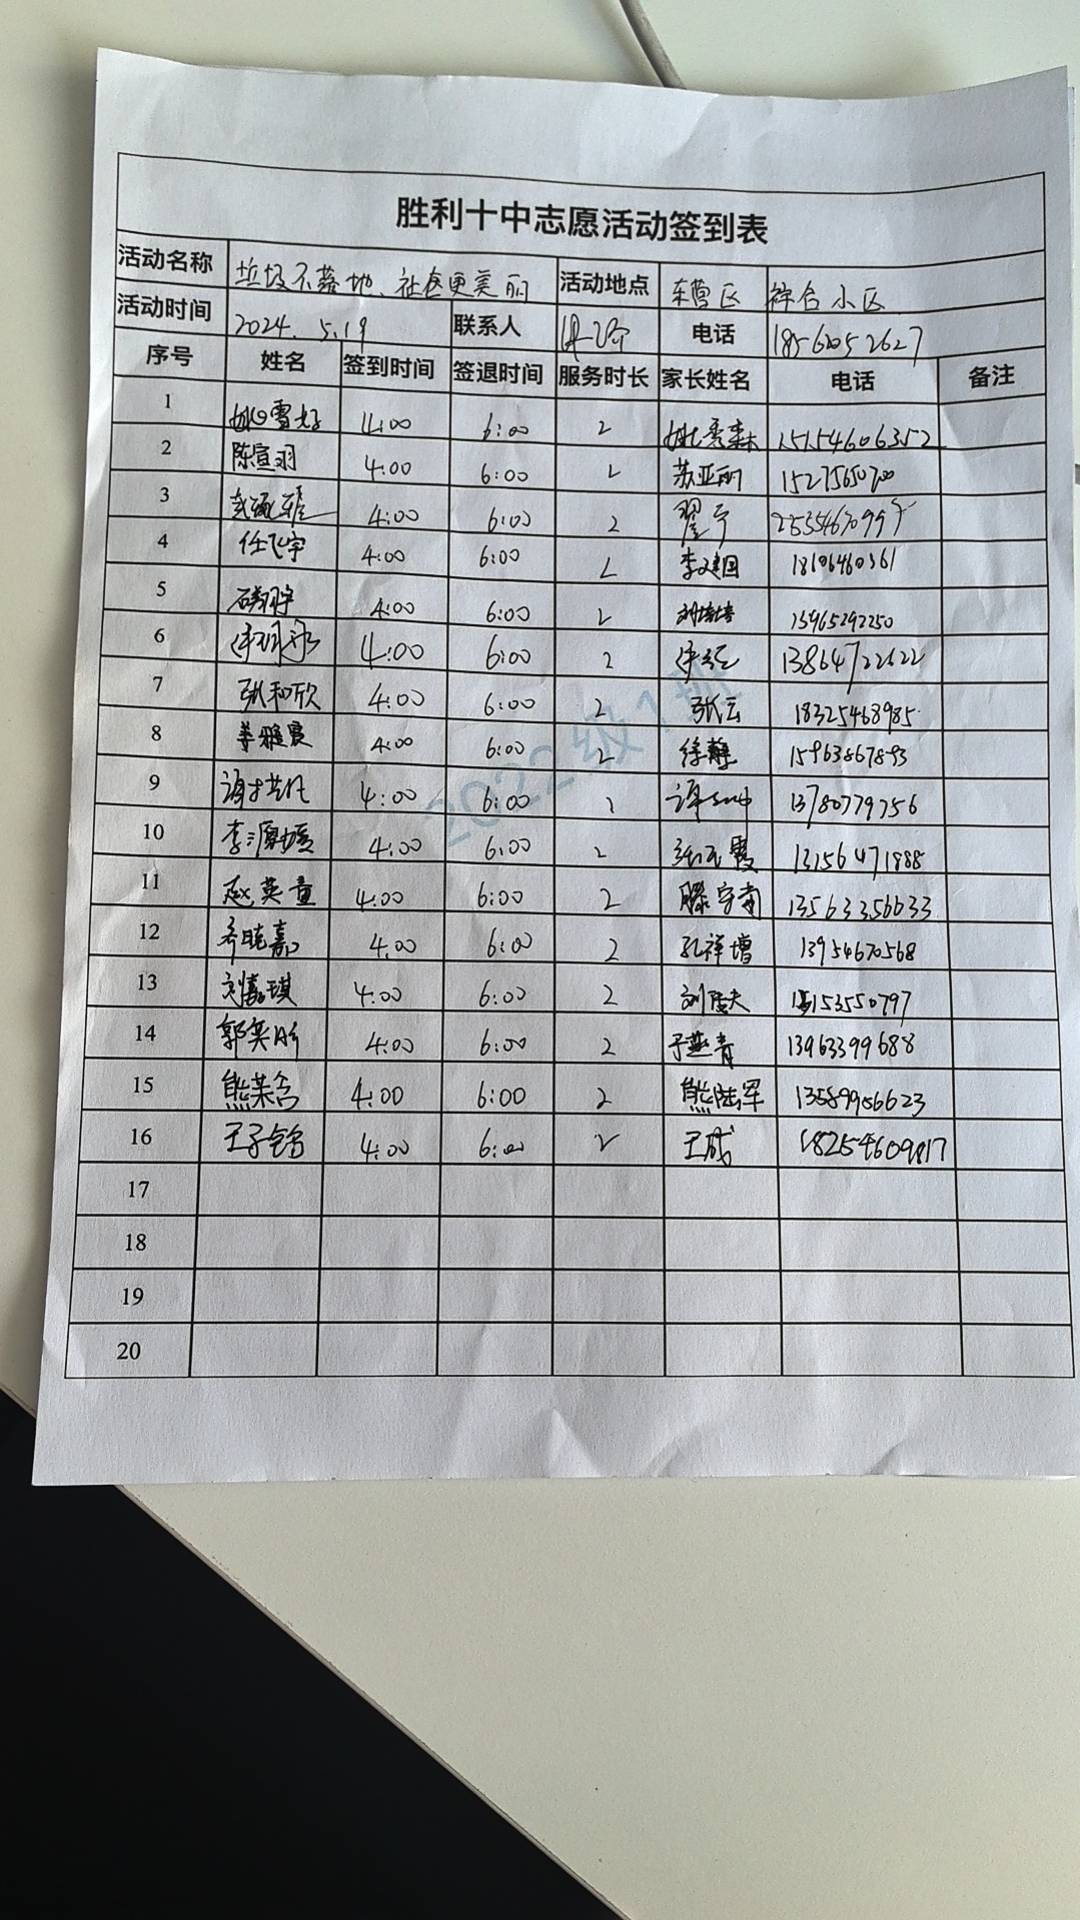 胜利十中志愿活动签到表
活动名称 垃圾不落地、社区更美丽 活动地点 东营区 综合小区
活动时间 2024.5.19 联系人 电话 18562052627
序号 姓名 签到时间 签退时间 服务时长 家长姓名 电话 备注
1 4:00 6:00 2 姚秀森 15154606352
2 陈宣羽 4:00 6:00 2 苏亚丽 15275650700
3 4:00 6:00 2 翟宁
4 任飞宇 4:00 6:00 2 李建国 18106460361
5 4:00 6:00 2 13965292250
6 4:00 6:00 2 13864722622
7 张和欣 4:00 6:00 2 张云 18325468985
8 姜雅霖 4:00 6:00 2 徐静 15963867893
9 4:00 6:00 2 13780779756
10 李源媛 4:00 6:00 2 张玉霞 13156471888
11 赵英童 4:00 6:00 2 滕宇南 13563356633
12 4:00 6:00 2 孔祥增 13954670568
13 刘嘉琪 4:00 6:00 2 15153550797
14 郭奕彤 4:00 6:00 2 于燕青 13963399688
15 熊荣含 4:00 6:00 2 熊陆军 13589956623
16 4:00 6:00 2 王成 18254609817
17
18
19
20
2022级1班